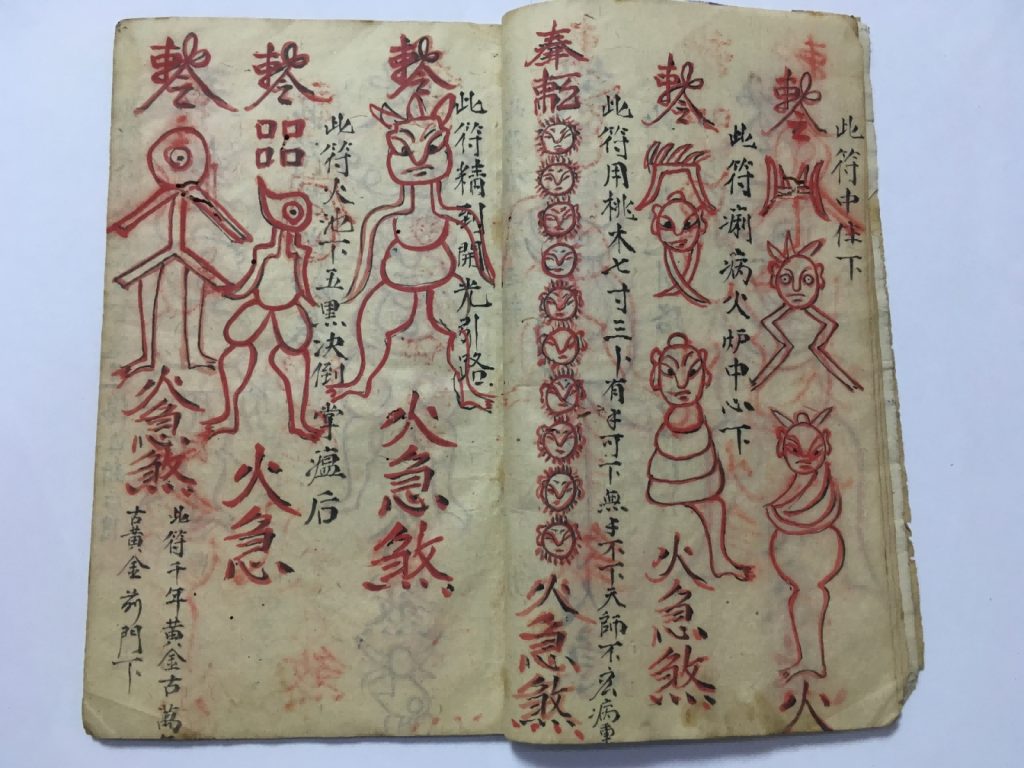 此符中住下
火
此符痢病火炉中心下
火急煞
此符用桃木七寸三卜有子可下無子不下天師不宏病重
奉勅
火急煞
此符精到開光引路
火急煞
此符火池下五黑决倒掌瘟后
火急
火急煞
此符千年黃金古萬
古黃金前門下